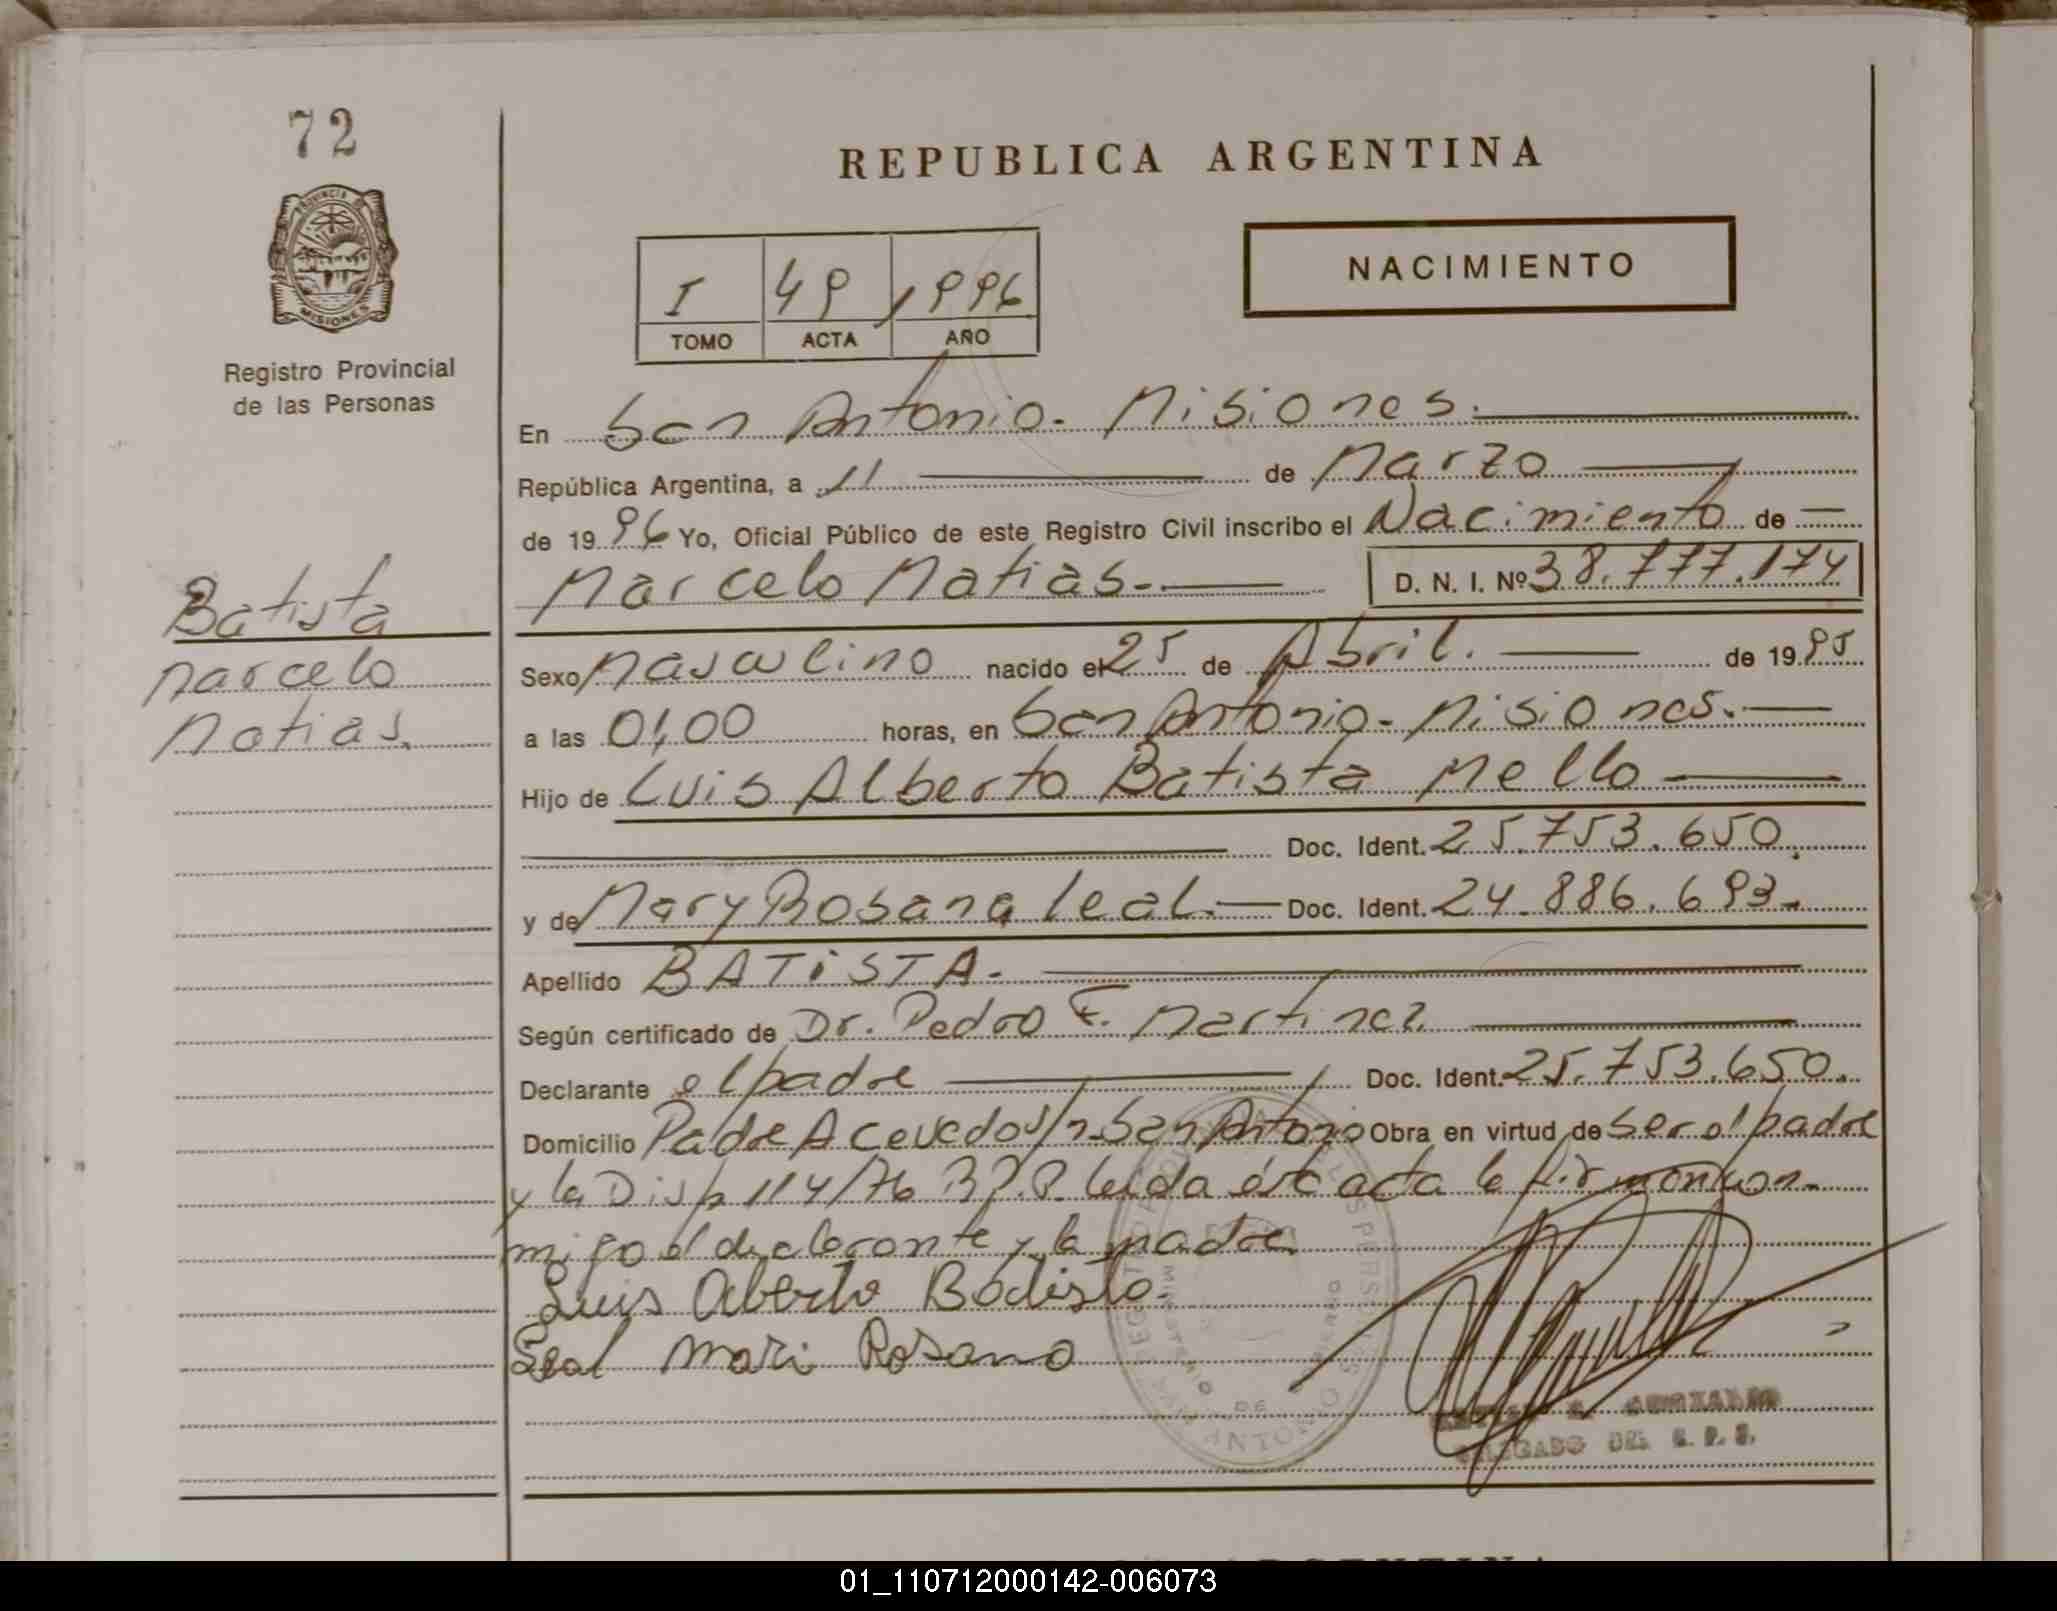 72
REPUBLICA ARGENTINA
NACIMIENTO
I 49 1996
TOMO ACTA AÑO
PROVINCIA DE
MISIONES
Registro Provincial
de las Personas
Batista
Marcelo
Matias.
En San Antonio - Misiones.
República Argentina, a 11 de Marzo
de 1996 Yo, Oficial Público de este Registro Civil inscribo el Nacimiento de
Marcelo Matias.- D. N. I. Nº 38.777.174
Sexo Masculino nacido el 25 de Abril. de 1995
a las 01,00 horas, en San Antonio - Misiones.
Hijo de Luis Alberto Batista Mello
Doc. Ident. 25.753.650.
y de Mary Rosana Leal.- Doc. Ident. 24.886.693.
Apellido BATiSTA.
Según certificado de Dr. Pedro F. Martinez
Declarante el padre Doc. Ident. 25.753.650.
Domicilio Padre Acevedo s/n San Antonio Obra en virtud de ser el padre
y la Disp 114/76 R.P.P. leida ésta acta la firman con-
migo el declarante y la madre.
Luis Alberto Batista.
Leal Mari Rosana
DELEGADO DEL R. P. P.
REPUBLICA ARGENTINA
01_110712000142-006073